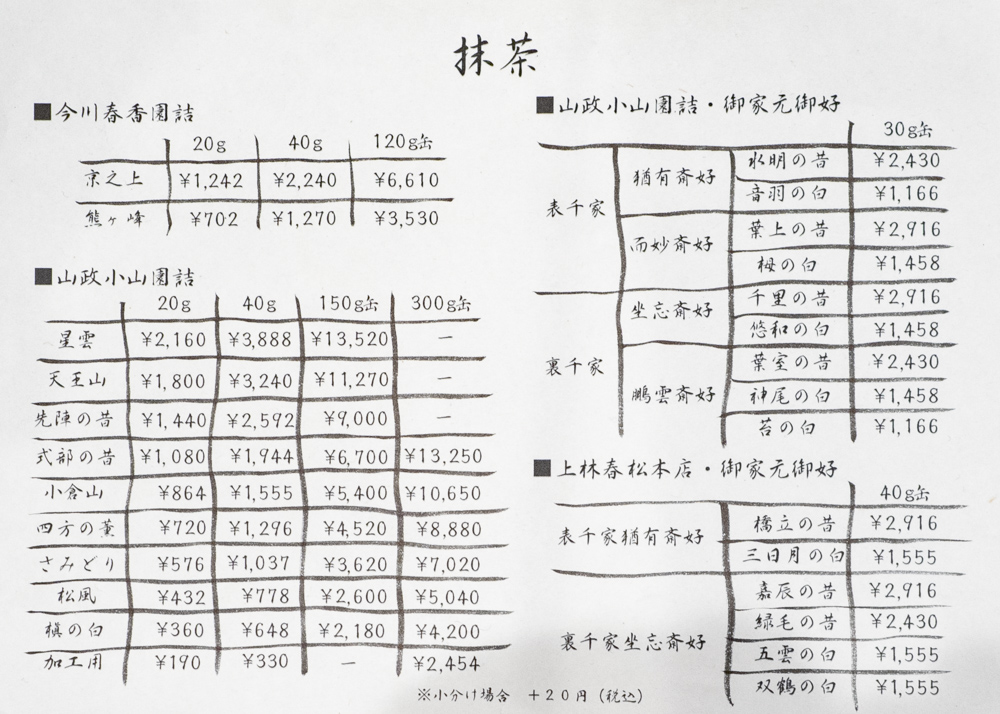 抹茶
■今川春香園詰
20g 40g 120g缶
京之上 ¥1,242 ¥2,240 ¥6,610
熊ヶ峰 ¥702 ¥1,270 ¥3,530
■山政小山園詰
20g 40g 150g缶 300g缶
星雲 ¥2,160 ¥3,888 ¥13,520 ー
天王山 ¥1,800 ¥3,240 ¥11,270 ー
先陣の昔 ¥1,440 ¥2,592 ¥9,000 ー
式部の昔 ¥1,080 ¥1,944 ¥6,700 ¥13,250
小倉山 ¥864 ¥1,555 ¥5,400 ¥10,650
四方の薫 ¥720 ¥1,296 ¥4,520 ¥8,880
さみどり ¥576 ¥1,037 ¥3,620 ¥7,020
松風 ¥432 ¥778 ¥2,600 ¥5,040
槇の白 ¥360 ¥648 ¥2,180 ¥4,200
加工用 ¥190 ¥330 ー ¥2,454
■山政小山園詰・御家元御好
30g缶
表千家
猶有斎好
水明の昔 ¥2,430
音羽の白 ¥1,166
而妙斎好
葉上の昔 ¥2,916
栂の白 ¥1,458
裏千家
坐忘斎好
千里の昔 ¥2,916
悠和の白 ¥1,458
鵬雲斎好
葉室の昔 ¥2,430
神尾の白 ¥1,458
苔の白 ¥1,166
■上林春松本店・御家元御好
40g缶
表千家猶有斎好
橋立の昔 ¥2,916
三日月の白 ¥1,555
裏千家坐忘斎好
嘉辰の昔 ¥2,916
緑毛の昔 ¥2,430
五雲の白 ¥1,555
双鶴の白 ¥1,555
※小分け場合 +20円(税込)